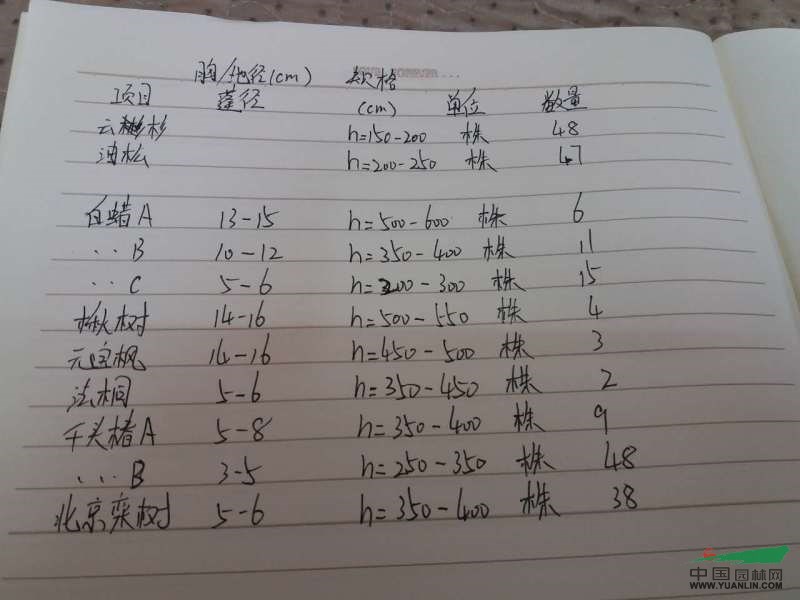 胸/地径(cm) 规格
项目 蓬径 (cm) 单位 数量
云杉 h=150-200 株 48
油松 h=200-250 株 47
白蜡A 13-15 h=500-600 株 6
‥B 10-12 h=350-400 株 11
‥C 5-6 h=200-300 株 15
楸树 14-16 h=500-550 株 4
元宝枫 14-16 h=450-500 株 3
法桐 5-6 h=350-450 株 2
千头椿A 5-8 h=350-400 株 9
‥‥B 3-5 h=250-350 株 48
北京栾树 5-6 h=350-400 株 38
中国园林网
WWW.YUANLIN.COM